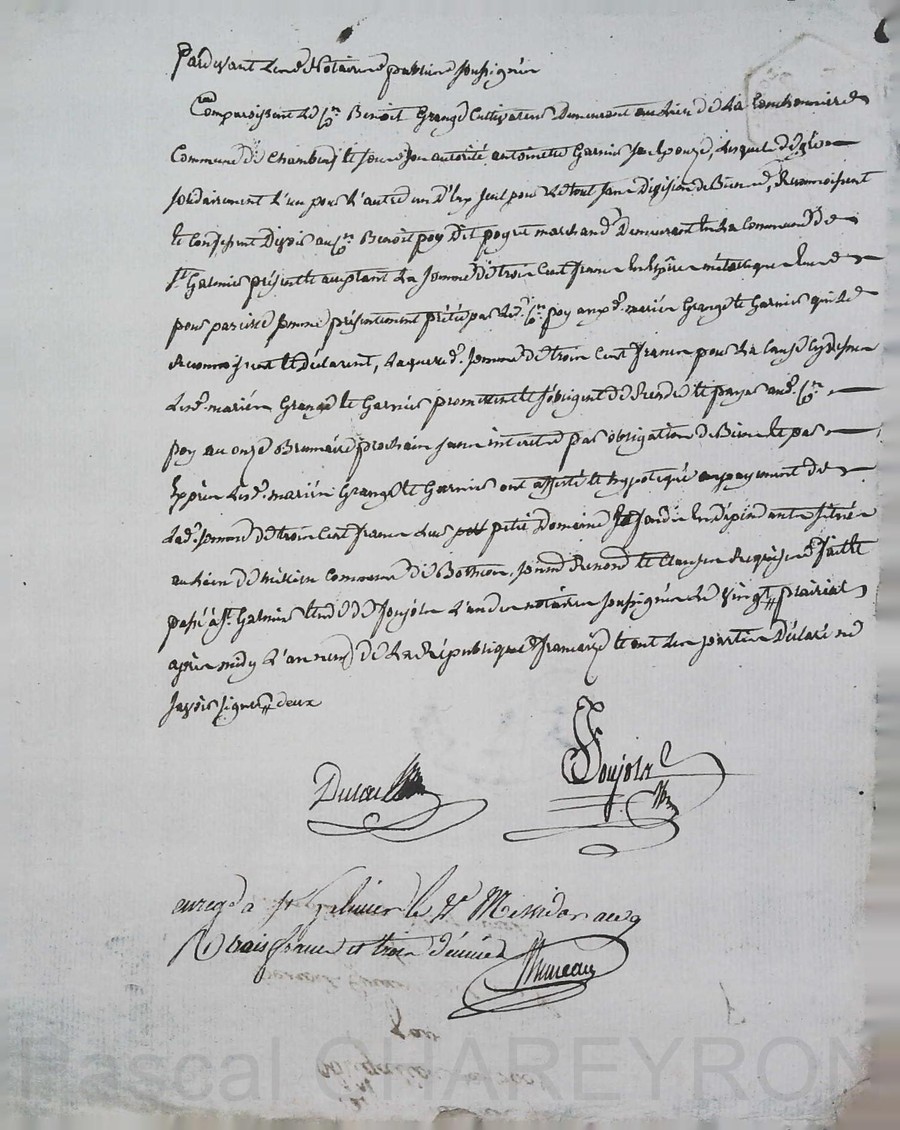 Pardevant Les Notaires publics soussignés
Comparoissent Le Cn. Benoit Grange Cultivateur Demeurant au Lieu De La
Commune De Chambeuf et sous son autorité antoinette Garnier son Epouze, Lesquels De gré
solidairement L'un pour L'autre un D'Eux seul pour Le tout sans Division De Biens, Reconnoissent
et Confessent Devoir au Cn. Benoit poy Dit marchand Demeurant En La Commune De
St. Galmier présent et acceptant La somme De trois Cent francs En Espèces métallique
pour pareille somme présentement prêtée par Led. Cn. poy auxd. mariés Grange et Garnier qui Le
Reconnoissent et Déclarent, Laquelle d. somme De trois Cent francs pour La Cause cy dessus
Lesd. mariés Grange et Garnier promettent et s'obligent De Rendre et payer aud. Cn.
poy au onze Brumaire prochain sans intérêts par obligation De Biens et par
Exprès Lesd. mariés Grange et Garnier ont affecté et hypotéqué au payement De
Lad. somme De trois Cent francs Leur petit Domaine fonds En Dépendants situés
au Lieu De Commune De Bothéon, soumis Renoncé et Clauses Requises fait et
passé à St. Galmier Etude De Soujols L'un des notaires soussignés Le vingt prairial
après midy L'an neuf De La République française et ont Les parties Déclaré ne
savoir signer deux
Soujols
enregé à St Galmier le 4 Messidor an 9
R trois francs et trois décimes
Pascal CHAREYRON